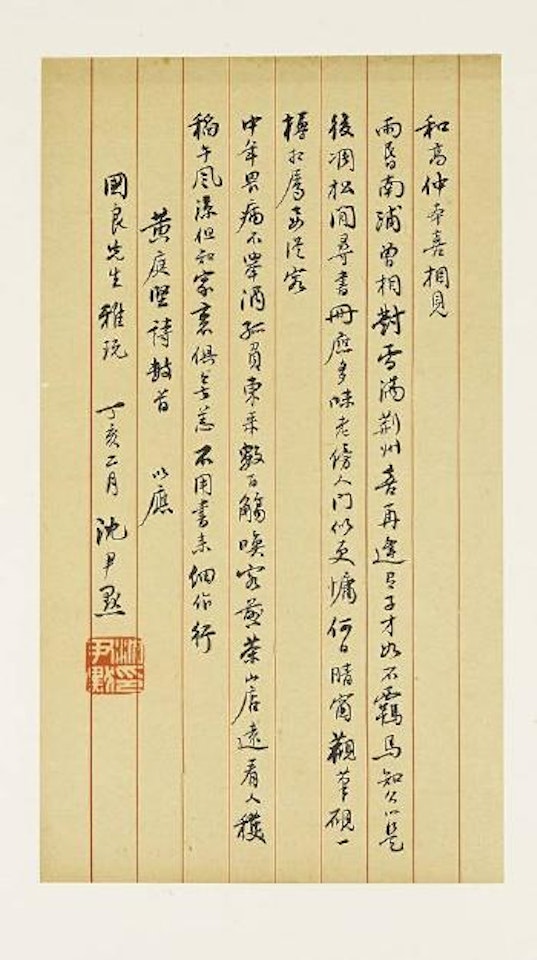 和高仲本喜相見
雨昏南浦曾相對雪滿荊州喜再逢有子才如不羈馬知公心是
後凋松閒尋書冊應多味老傍人門似更慵何日晴窗觀筆硯一
樽相屬要從容
中年畏病不舉酒孤負東來數百觴喚客煎茶山店遠看人穫
稻午風涼但知家裏俱無恙不用書來細作行
黃庭堅詩數首 以應
國良先生雅玩 丁亥二月 沈尹默